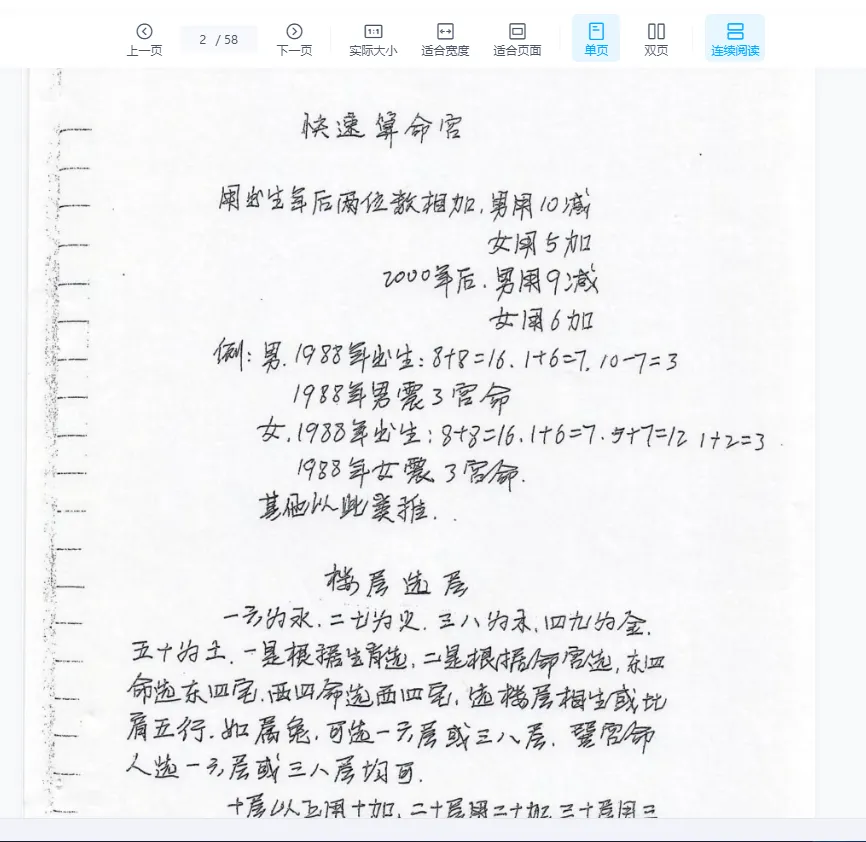 上一页
2 / 58
下一页
1:1
实际大小
适合宽度
适合页面
单页
双页
连续阅读
快速算命宫
用出生年后两位数相加,男用10减
女用5加
2000年后.男用9减
女用6加
例:男.1988年出生:8+8=16.1+6=7.10-7=3
1988年男震3宫命
女.1988年出生:8+8=16.1+6=7.5+7=12 1+2=3
1988年女震3宫命.
其他以此类推..
楼层选层
一六为水.二七为火.三八为木.四九为金.
五十为土.一是根据生肖选,二是根据命宫选,东四
命选东四宅.西四命选西四宅,选楼层相生或比
肩五行.如属兔,可选一六层或三八层.震宫命
人选一六层或三八层均可.
十层以上用十加,二十层用二十加,三十层用三